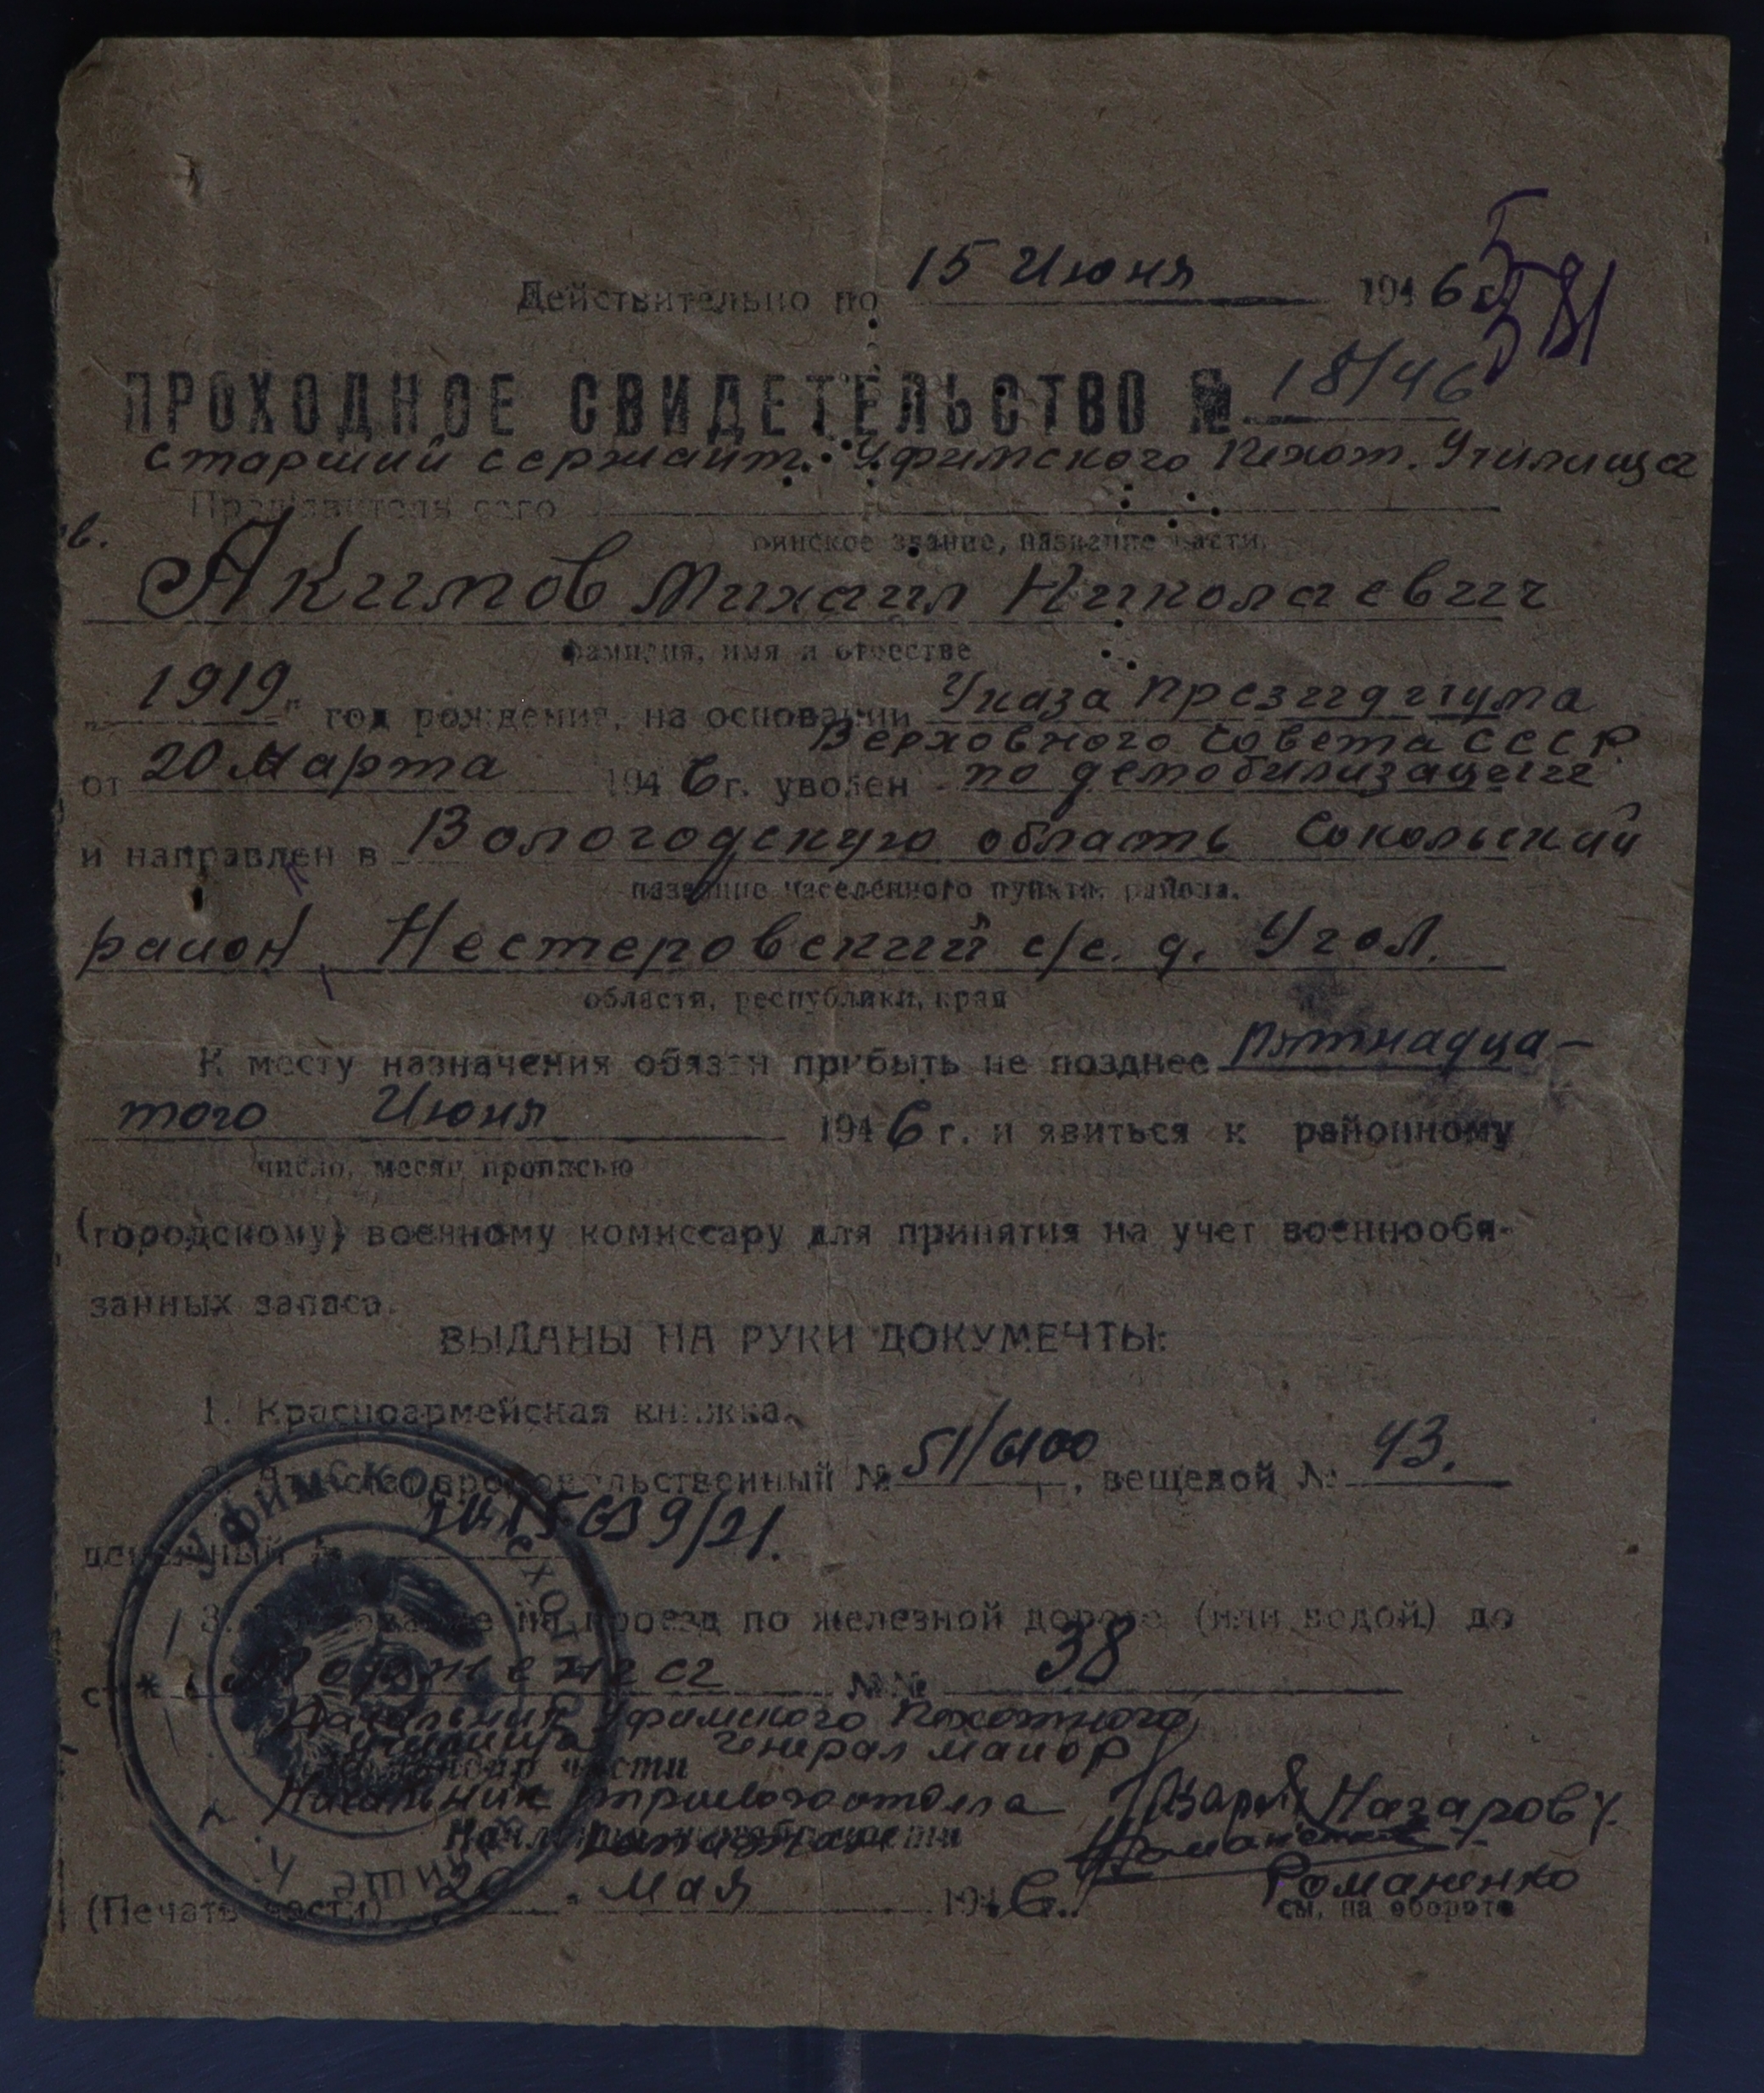 Действительно по 15 Июня 1946 г.
581
ПРОХОДНОЕ СВИДЕТЕЛЬСТВО № 18/46
старший сержант. Уфимского Пехот. Училища
Предъявитель сего
воинское звание, название части.
Акимов Михаил Николаевич
фамилия, имя и отчестве
„1919„ год рождения, на основании Указа Президиума
Верховного Совета СССР
от 20 Марта 1946 г. уволен по демобилизации
и направлен в Вологодскую область Сокольский
название населенного пункта, района.
район Нестеровский с/с. д. Угол.
области, республики, края
К месту назначения обязан прибыть не позднее пятнадца-
того Июня 1946 г. и явиться к районному
число, месяц прописью
(городскому) военному комиссару для принятия на учет военнообя-
занных запаса.
ВЫДАНЫ НА РУКИ ДОКУМЕНТЫ:
1. Красноармейская книжка.
2. Аттестат продовольственный № , вещевой № 43.
денежный №
3. Требование на проезд по железной дороге (или водой) до
№№ 38
Начальник Уфимского Пехотного
училища Генерал майор
Командир части
Начальник строевого отдела Назаров
(Печать части) 20 " Мая 1946.
Романенко
см. на обороте
Уфимское пехотное училище